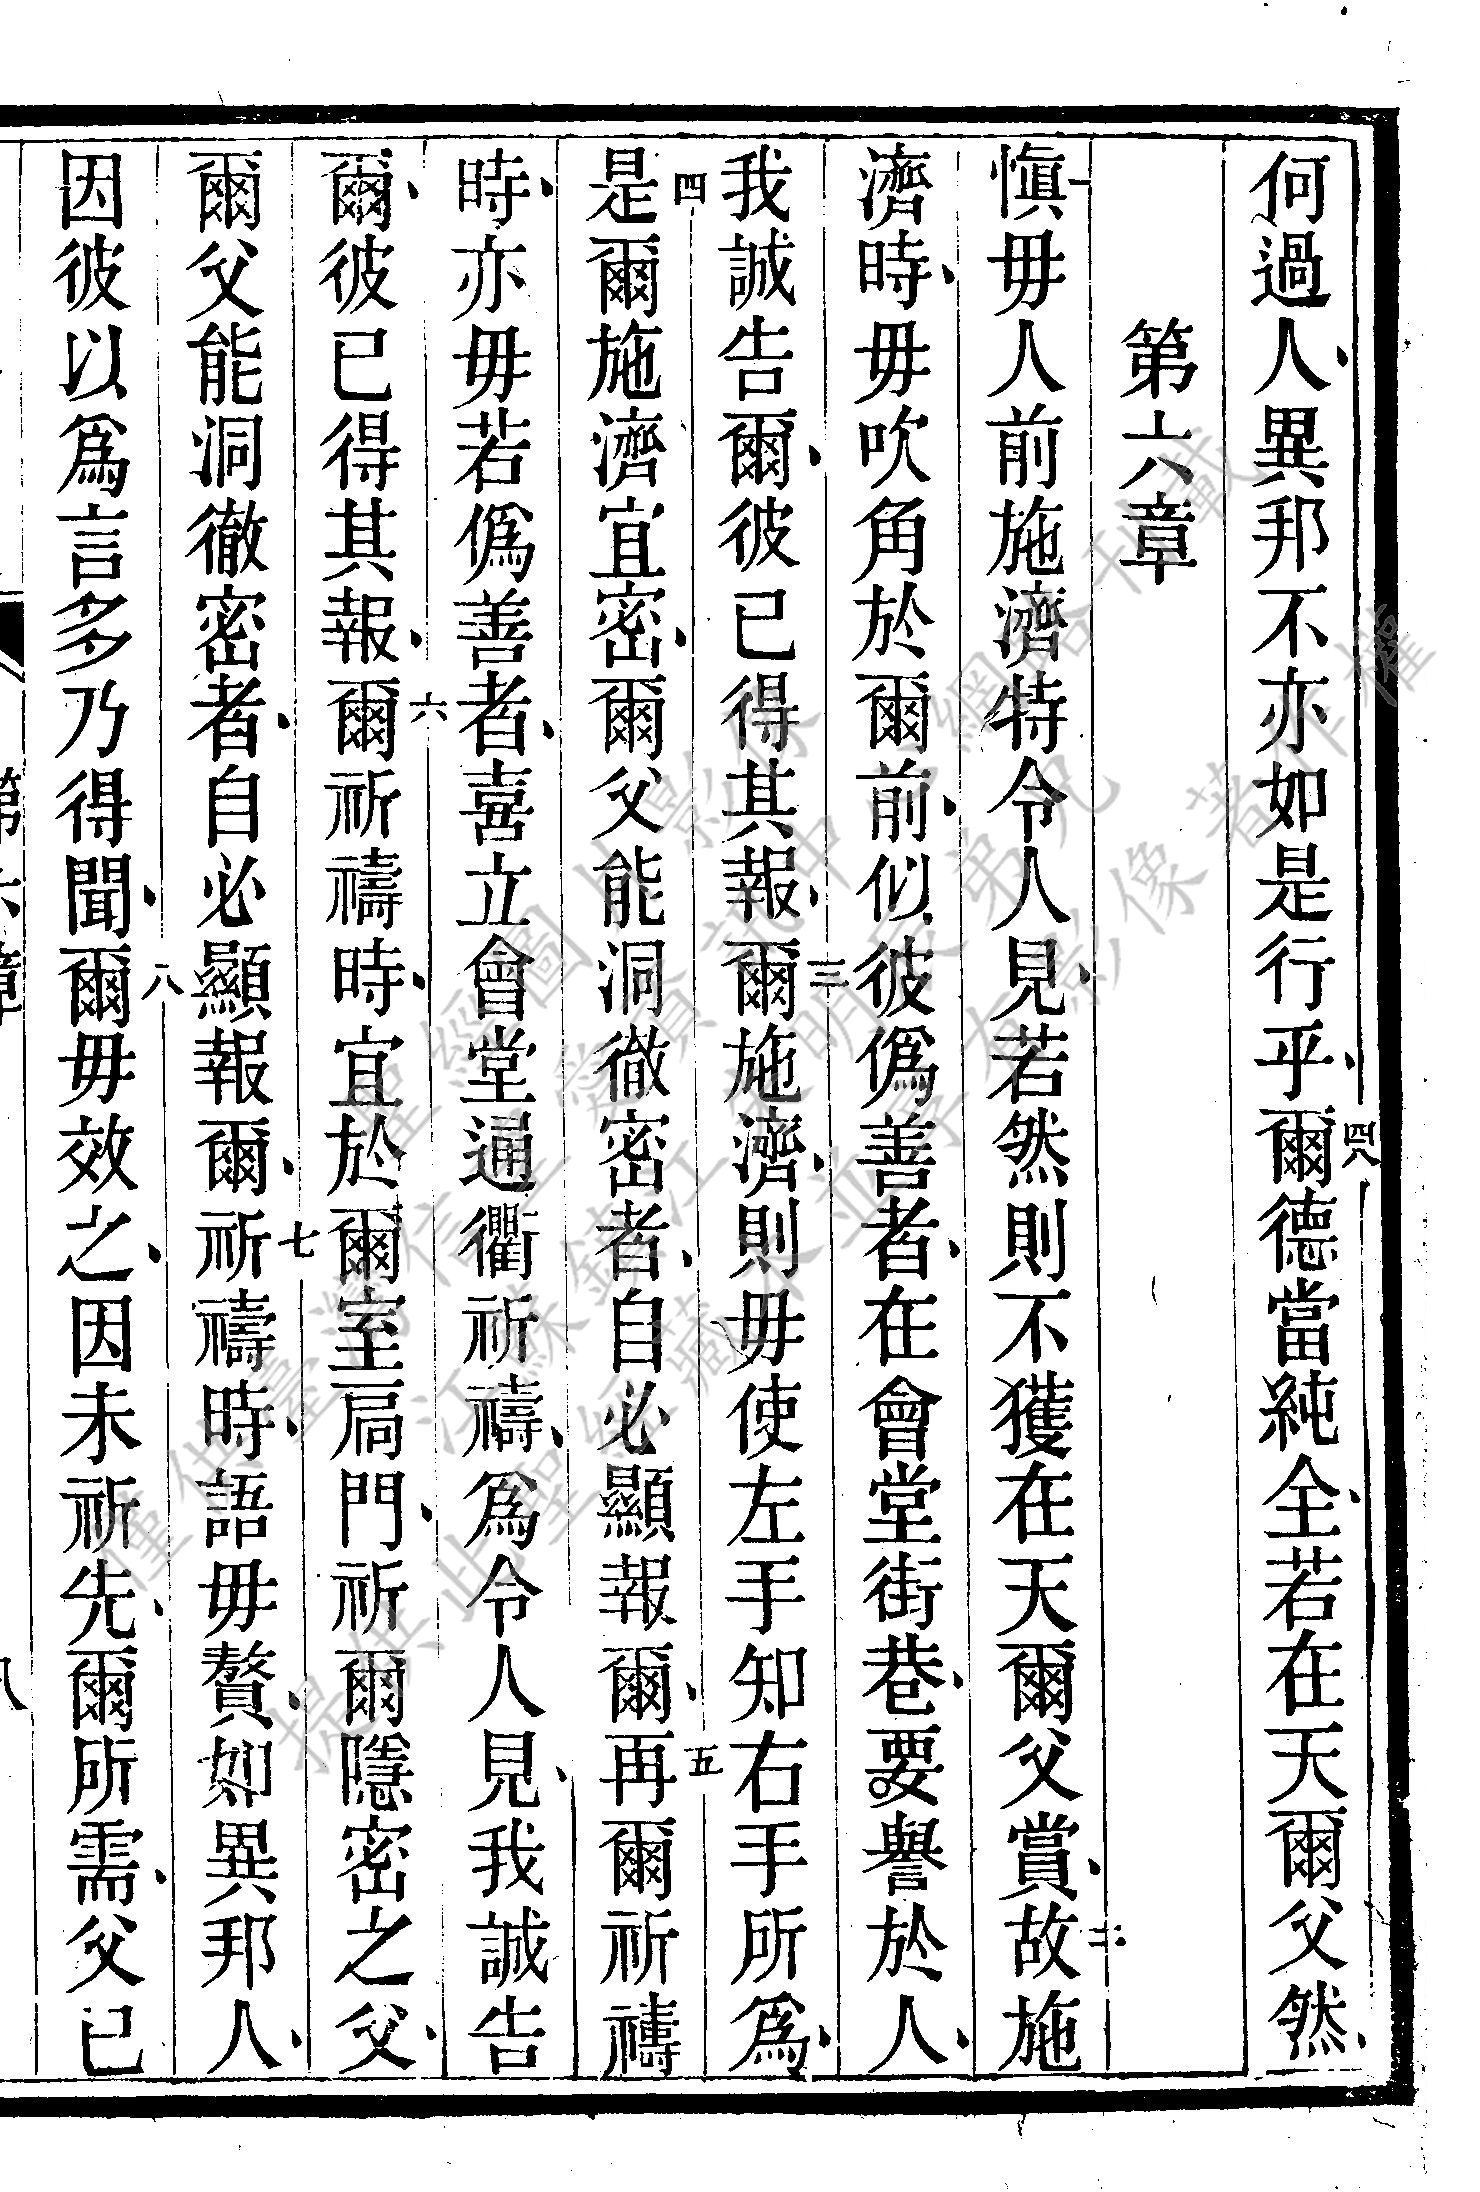 何過人、異邦不亦如是行乎、四八爾德當純全、若在天爾父然、
第六章
一愼毋人前施濟特令人見、若然則不獲在天爾父賞、二故施
濟時、毋吹角於爾前、似彼僞善者、在會堂街巷、要譽於人、
我誠告爾、彼已得其報、三爾施濟、則毋使左手知右手所爲、
四是爾施濟宜密、爾父能洞徹密者、自必顯報爾、五再爾祈禱
時、亦毋若僞善者、喜立會堂通衢祈禱、爲令人見、我誠告
爾、彼已得其報、六爾祈禱時、宜於爾室扃門、祈爾隱密之父、
爾父能洞徹密者、自必顯報爾、七祈禱時、語毋贅、如異邦人、
因彼以爲言多乃得聞、八爾毋效之、因未祈先、爾所需、父已